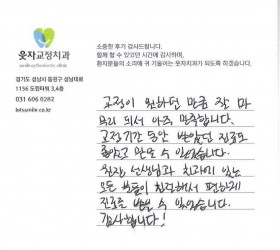 웃자교정치과
경기도 성남시 중원구 성남대로
1156 도림타워 3,4층
031 606 0282
letssmile.co.kr
소중한 후기 감사드립니다.
함께 할 수 있었던 시간에 감사하며,
환자분들의 소리에 귀 기울이는 웃자치과가 되도록 하겠습니다.
교정이 원하던 만큼 잘 마
무리 되서 아주 만족합니다.
교정기간 동안 받았던 진료도
즐겁고 받을 수 있었습니다.
원장 선생님과 치과에 있는
모든 분들이 친절해서 편하게
진료를 받을 수 있었습니다.
감사합니다!